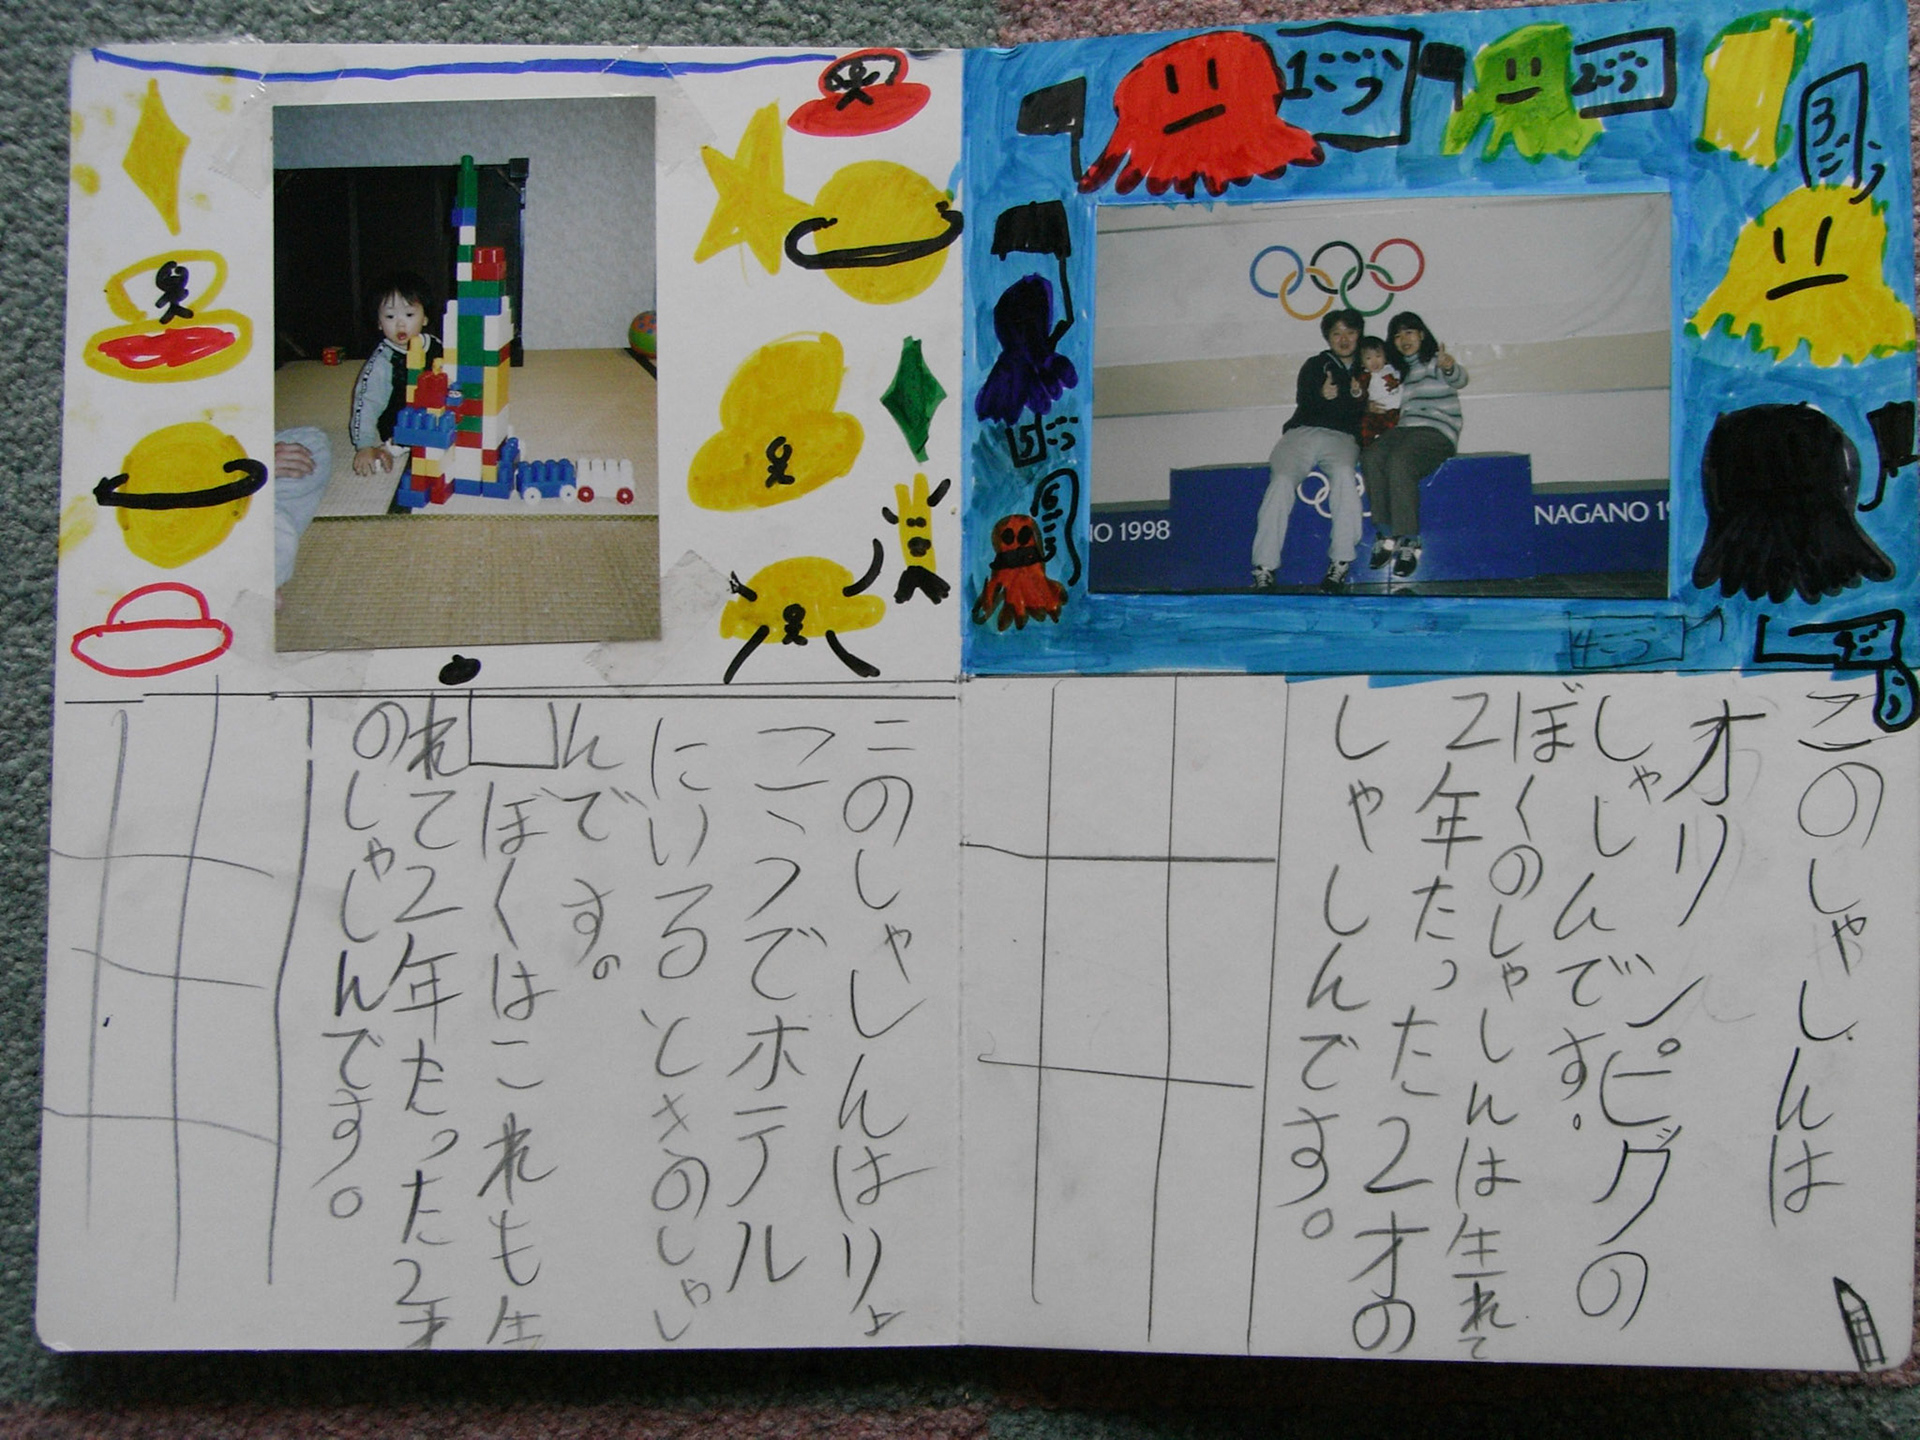 1ごう
2ごう
3ごう
4ごう
4ごう
5ごう
6ごう
O 1998
NAGANO 19
このしゃしんは
オリンピグの
しゃしんです。
ぼくのしゃしんは生れて
2年たった2才の
しゃしんです。
このしゃしんはりょ
こうでホテル
にいるときのしゃし
んです。
ぼくはこれも生
れて2年たった2才
のしゃしんです。